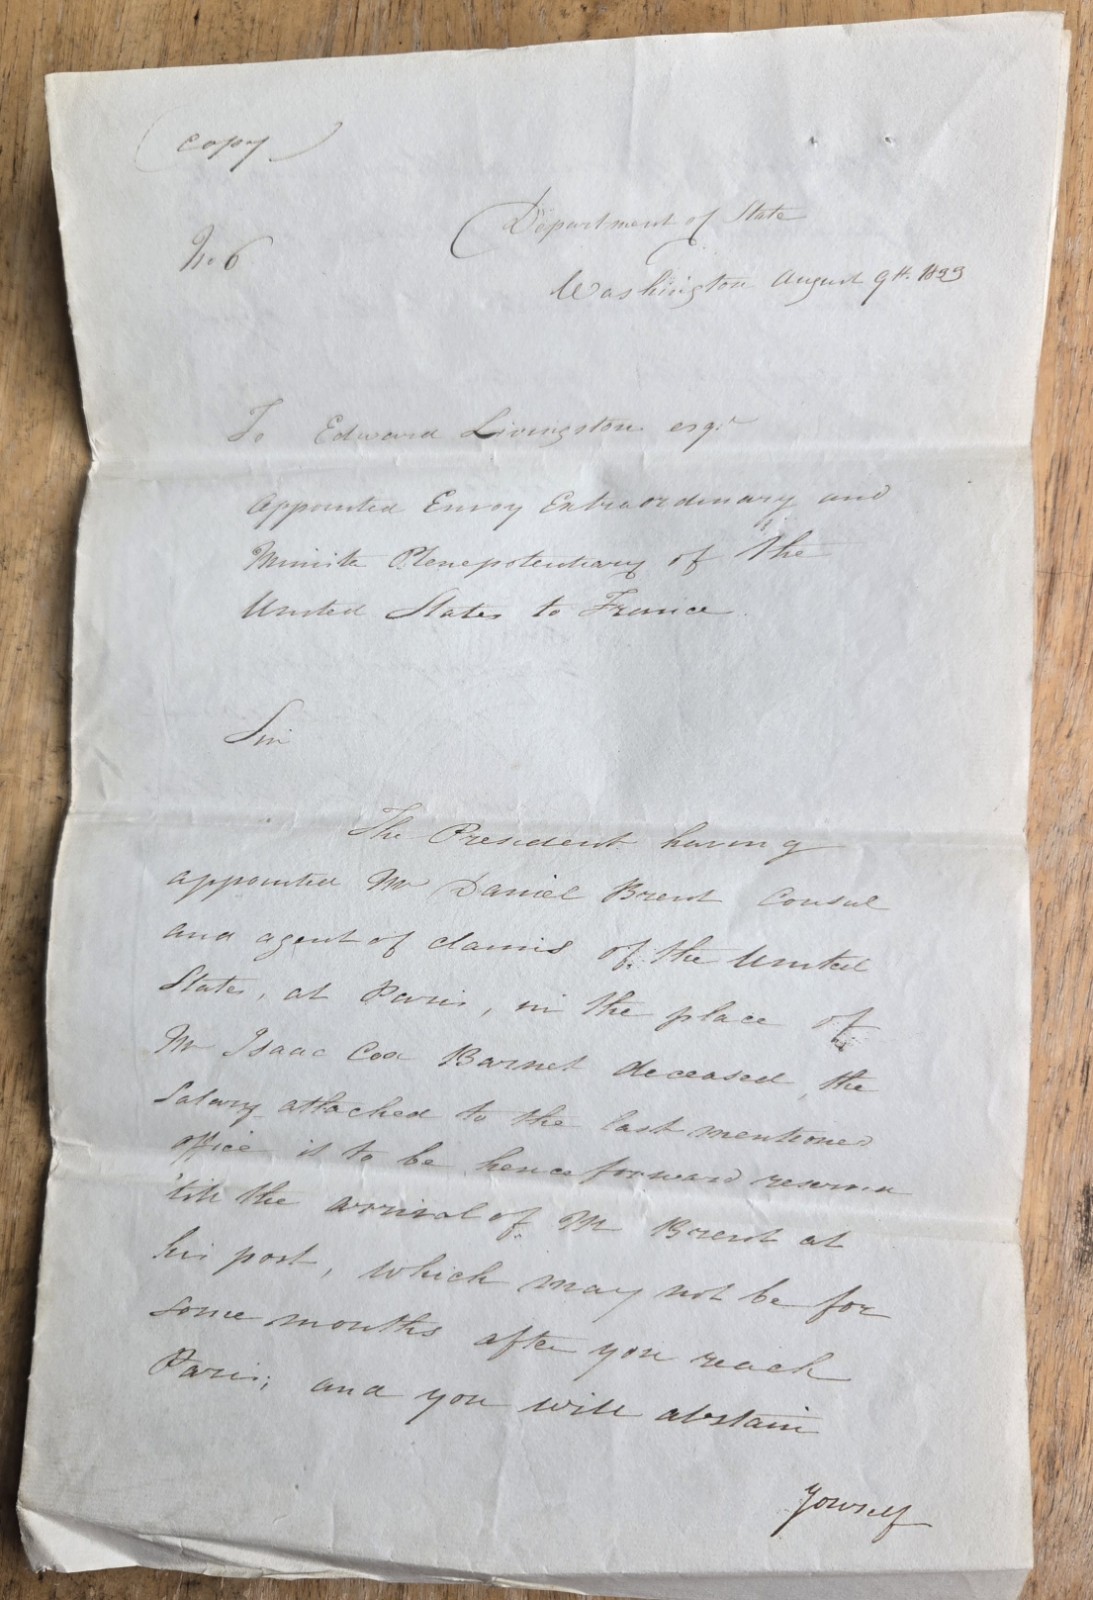 (Copy)
Department of State
No 6
Washington August 9th. 1833
To Edward Livingston esqr
appointed Envoy Extraordinary and
Ministr Plenepotentiary of the
United States to France.
Sir
The President having
appointed Mr Daniel Brent Consul
and agent of claims of the United
States, at Paris, in the place of
Mr Isaac Cox Barnet deceased, the
Salary attached to the last mentioned
office is to be henceforward reserved
'till the arrival of Mr Brent at
his post, which may not be for
some months after you reach
Paris; and you will abstain
yourself